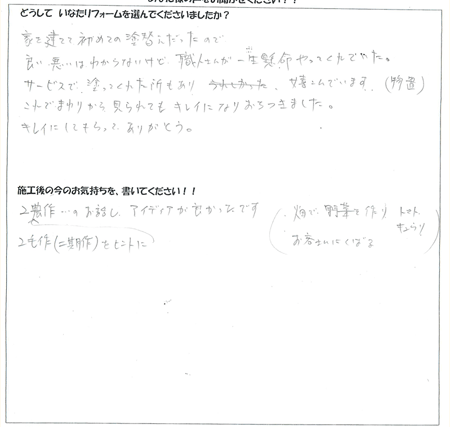 どうして いなたリフォームを選んでくださいましたか？
家を建てて初めての塗替えだったので
良い悪いはわからないけど、職人さんが一生懸命やってくれてた。
サービスで塗ってくれた所もあり うれしかった、喜こんでいます。(物置)
これでまわりから見られてもキレイになりおちつきました。
キレイにしてもらって、ありがとう。
施工後の今のお気持ちを、書いてください！！
2農作…のお話し、アイディアが良かったです
2毛作(二期作)をヒントに
畑で野菜を作り トマト キュウリ
お客さんにくばる